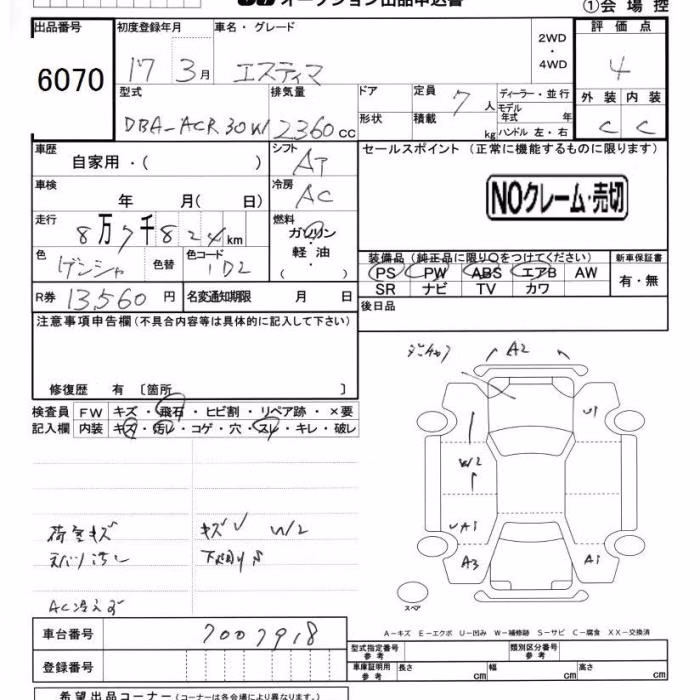 オークション出品申込書
①会場控
出品番号 初度登録年月 車名・グレード 2WD・4WD 評価点
6070 17 3月 エスティマ 4
型式 排気量 ドア 定員 7人 ディーラー・並行 外装 内装
DBA-ACR30W 2360cc 形状 積載 kg モデル年式 年 ハンドル 左・右 C C
車歴 シフト セールスポイント(正常に機能するものに限ります)
自家用・( ) AT
車検 冷房 NOクレーム・売切
年 月( 日) AC
走行 燃料
8万7千824km ガソリン
軽油
( )
色 色替 色コード 装備品(純正品に限り○をつけてください) 新車保証書
1D2 PS PW ABS エアB AW 有・無
SR ナビ TV カワ
R券 13,560円 名変通知期限 月 日 後日品
注意事項申告欄(不具合内容等は具体的に記入して下さい)
A2
修復歴 有〔箇所 〕
検査員 FW キズ・飛石・ヒビ割・リペア跡・×要
記入欄 内装 キズ・汚レ・コゲ・穴・スレ・キレ・破レ
U1
W2
荷室キズ キズU W2
UA1
A3 A1
AC冷えず
スペア
A-キズ E-エクボ U-凹み W-補修跡 S-サビ C-腐食 XX-交換済
車台番号 7007918
型式指定番号 参考 類別区分番号 参考
登録番号
車庫証明用 参考 長さ cm 幅 cm 高さ cm
希望出品コーナー(コーナーは各会場により異なります。)